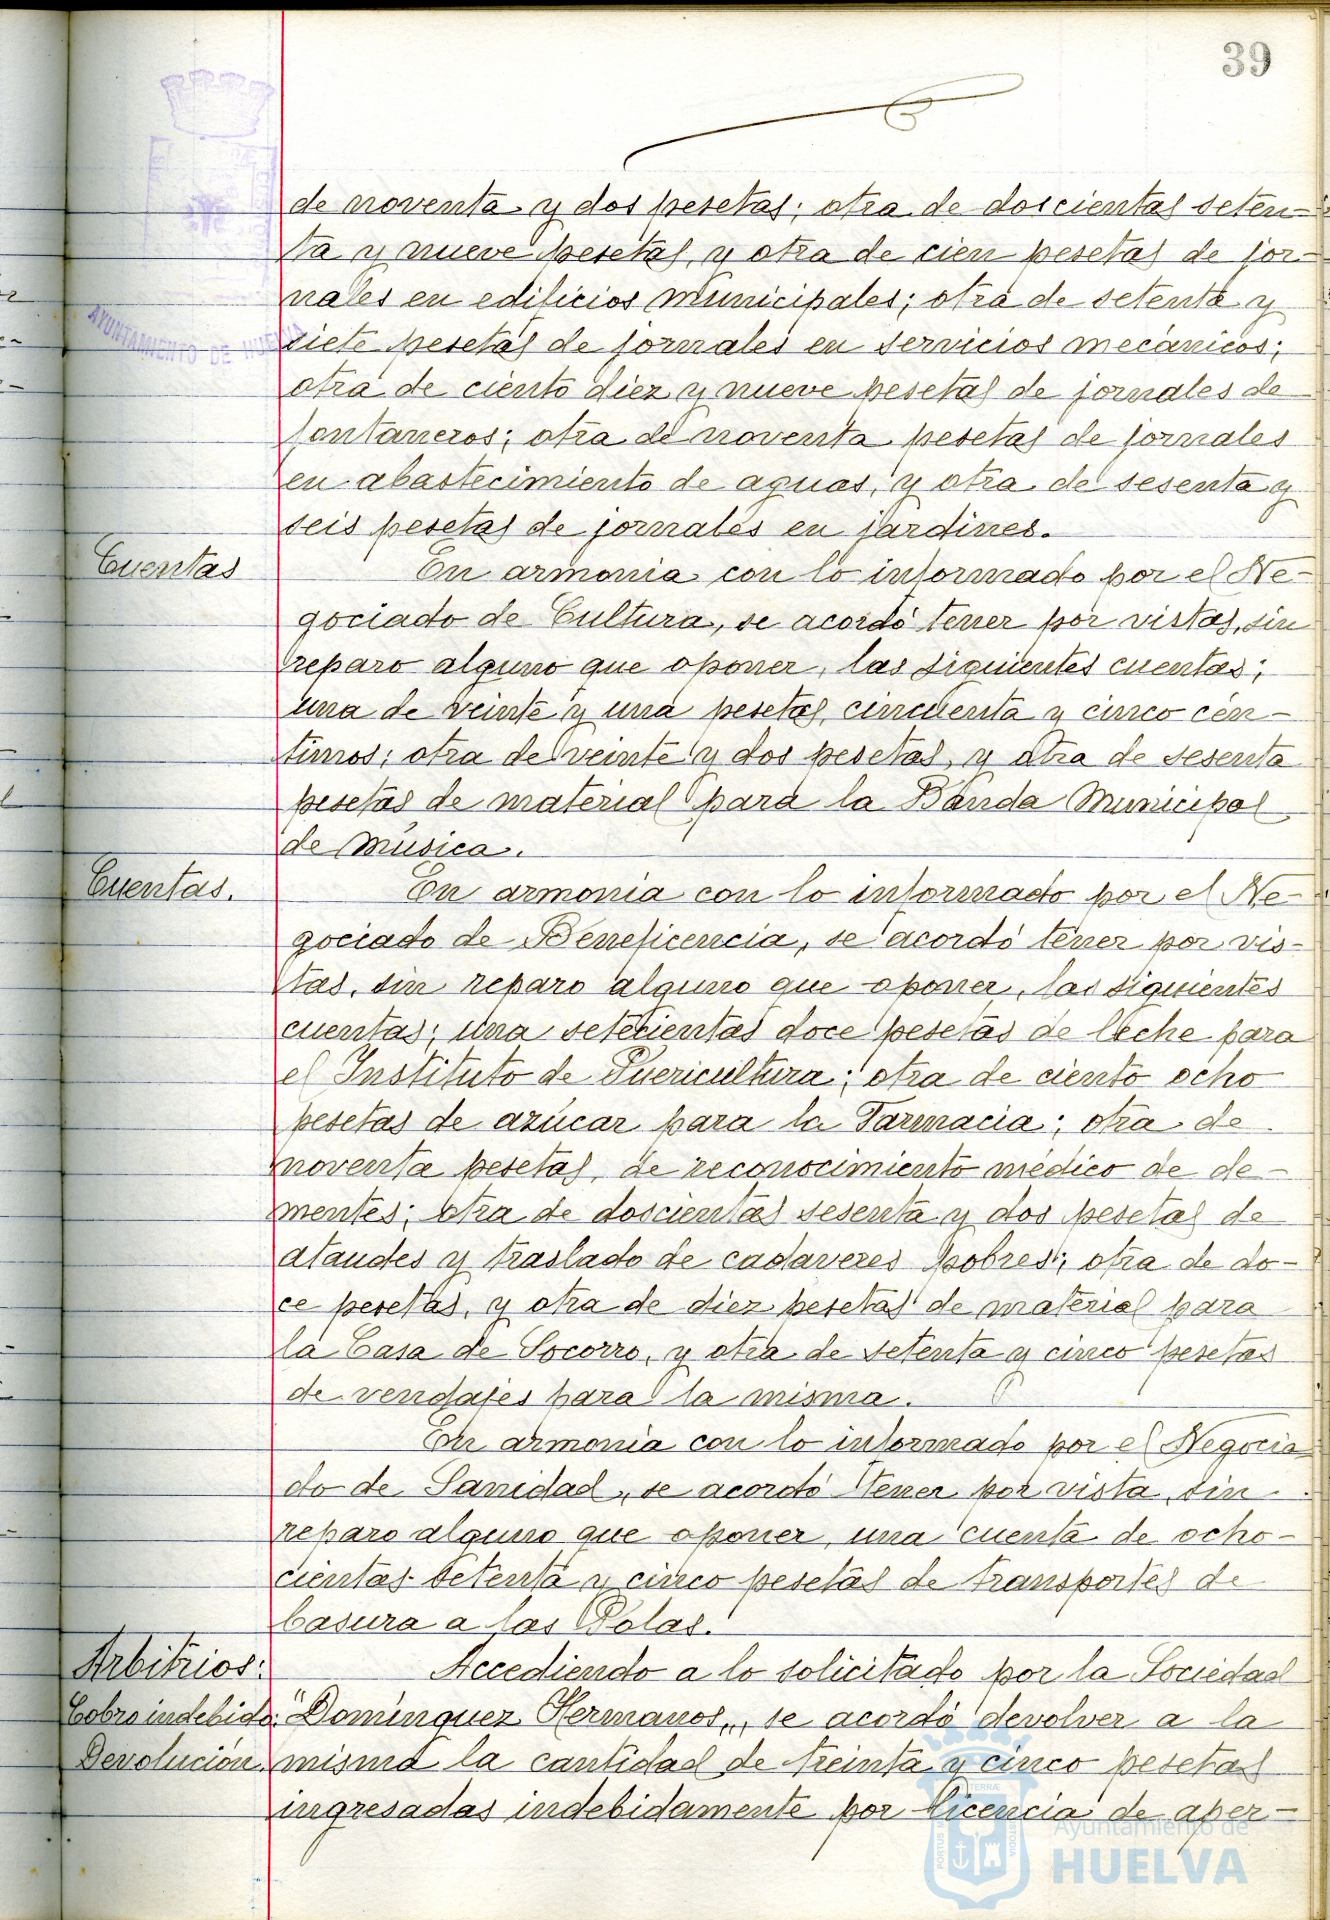 39
de noventa y dos pesetas; otra de doscientas seten-
ta y nueve pesetas, y otra de cien pesetas de jor-
nales en edificios Municipales; otra de setenta y
siete pesetas de jornales en servicios mecánicos;
AYUNTAMIENTO DE HUELVA
otra de ciento diez y nueve pesetas de jornales de
fontaneros; otra de noventa pesetas de jornales
en abastecimiento de aguas, y otra de sesenta y
seis pesetas de jornales en jardines.
Cuentas
En armonia con lo informado por el Ne-
gociado de Cultura, se acordó tener por vistas, sin
reparo alguno que oponer, las siguientes cuentas;
una de veinte y una pesetas, cincuenta y cinco cén-
timos; otra de veinte y dos pesetas, y otra de sesenta
pesetas de material para la Banda Municipal
de Música.
Cuentas.
En armonia con lo informado por el Ne-
gociado de Beneficencia, se acordó tener por vis-
tas, sin reparo alguno que oponer, las siguientes
cuentas; una setecientas doce pesetas de leche para
el Instituto de Puericultura; otra de ciento ocho
pesetas de azúcar para la Farmacia; otra de
noventa pesetas, de reconocimiento médico de de-
mentes; otra de doscientas sesenta y dos pesetas de
ataudes y traslado de cadaveres pobres; otra de do-
ce pesetas, y otra de diez pesetas de material para
la Casa de Socorro, y otra de setenta y cinco pesetas
de vendajes para la misma.
En armonia con lo informado por el Negocia
do de Sanidad, se acordó tener por vista, sin
reparo alguno que oponer, una cuenta de ocho-
cientas setenta y cinco pesetas de transportes de
basura a las Polas.
Arbitrios:
Accediendo a lo solicitado por la Sociedad
Cobro indebido:
"Domínguez Hermanos,,, se acordó devolver a la
Devolución.
misma la cantidad de treinta y cinco pesetas
ingresadas indebidamente por licencia de aper-
Ayuntamiento de
HUELVA